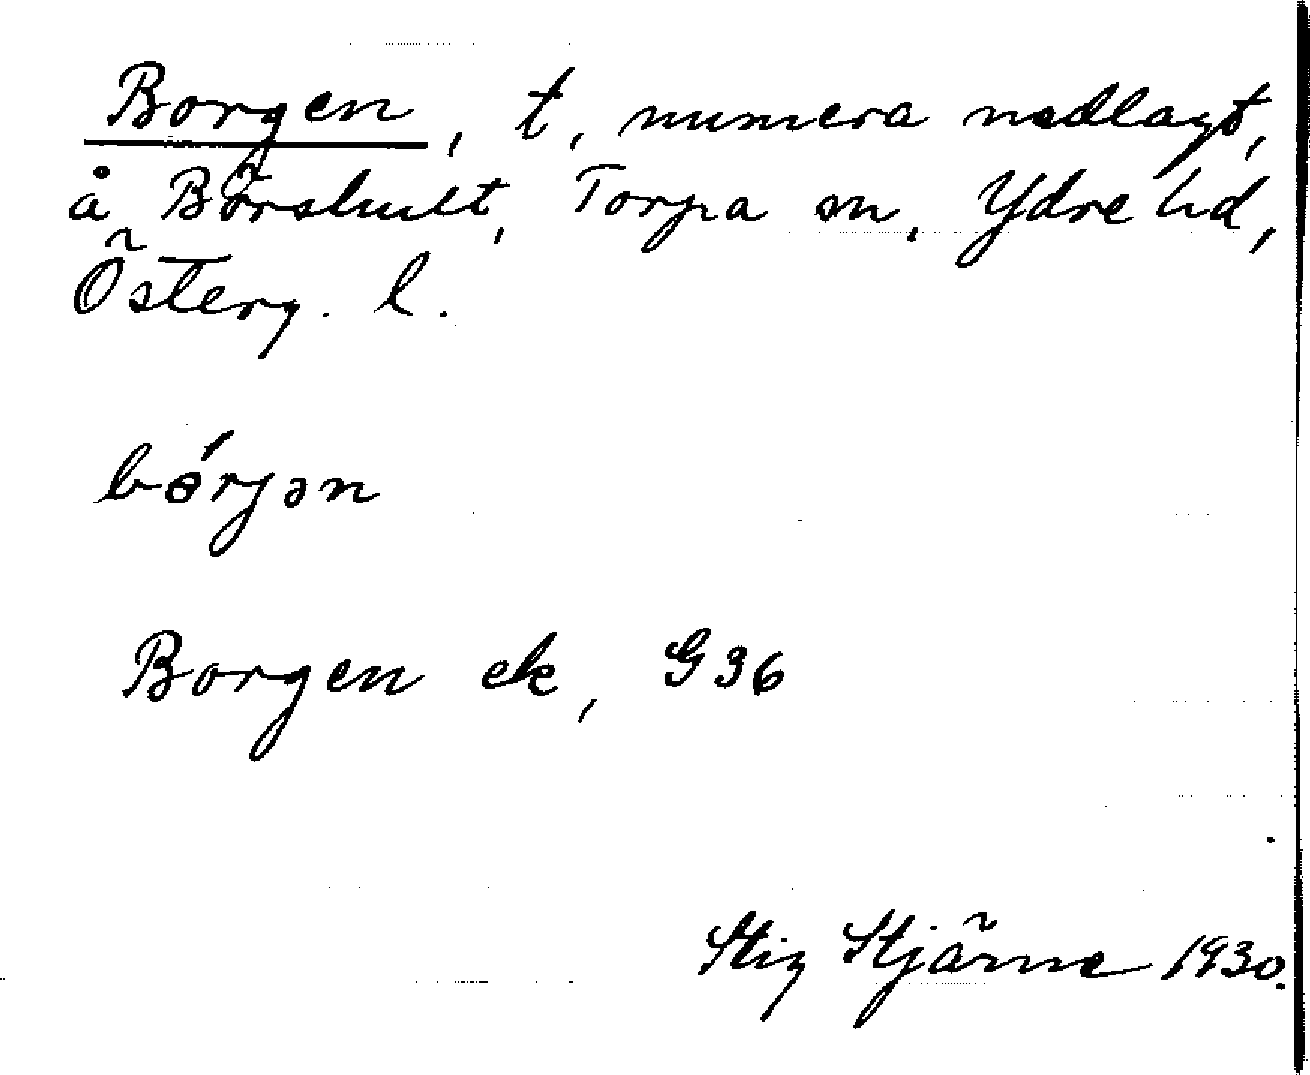 Borgen, t, numera nedlagt,
å Börshult, Torpa sn, Ydre hd,
Österg. l.
bɵ́rjən
Borgen ek, G36
Stig Stjärne 1930.